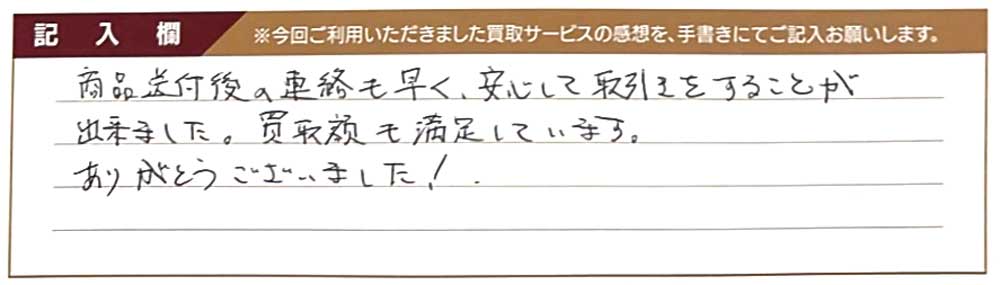 記入欄
※今回ご利用いただきました買取サービスの感想を、手書きにてご記入お願いします。
商品送付後の連絡も早く、安心して取引きをすることが
出来ました。買取額も満足しています。
ありがとうございました!